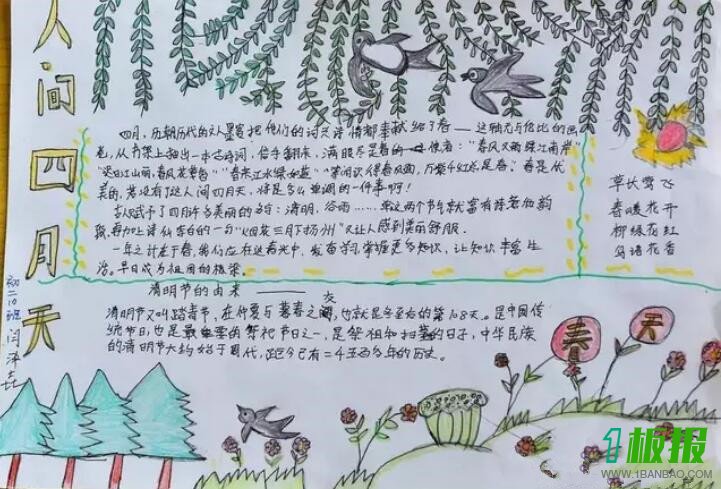 人间四月天
初二10班 闫泽
四月,历朝历代的文人墨客把他们的词文诗情都奉献给了春——这轴无与伦比的画
卷,从书架上抽出一本古诗词,信手翻来,满眼尽是春的使者:"春风又绿江南岸"
"迟日江山丽,春风花草香""春来江水绿如蓝""等闲识得春风面,万紫千红总是春"春是优
美的,若没有了这人间四月天,将是多么难过的一件事啊!
古人赋予了四月许多美丽的名字:清明,谷雨……单这两个节气就富有诗意
再加上诗仙李白的一句"烟花三月下扬州"又让人感到美丽舒服.
一年之计在于春,我们应在这春光中,发奋学习,掌握更多知识,让知识丰富生
活.早日成为祖国的栋梁.
草长莺飞
春暖花开
柳绿花红
鸟语花香
清明节的由来
清明节又叫踏青节,在仲春与暮春之交,也就是冬至后的第108天。是中国传
统节日,也是最重要的祭祀节日之一,是祭祖和扫墓的日子,中华民族
的清明节大约始于周代,距今已有二千五百多年的历史。
春天
1板报
WWW.1BANBAO.COM